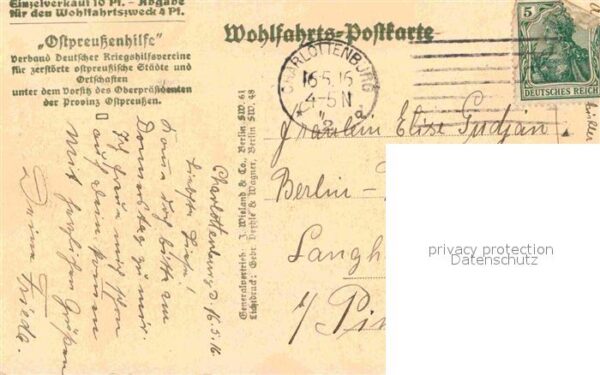 Einzelverkauf 10 Pf. - Abgabe
für den Wohlfahrtszweck 4 Pf.
„Ostpreußenhilfe“
Verband Deutscher Kriegshilfsvereine
für zerstörte ostpreußische Städte und
Ortschaften
unter dem Vorsitz des Oberpräsidenten
der Provinz Ostpreußen.
Wohlfahrts-Postkarte
CHARLOTTENBURG
16.5.16
4-5N
* 2 d
5
DEUTSCHES REICH
Generalvertrieb: J. Wieland & Co., Berlin SW. 61
Lichtdruck: Gebr. Heyhle & Wagner, Berlin SW. 48
Charlottenburg d. 16.5.16
Komm doch bitte am
Donnerstag zu mir.
Ich freue mich schon
auf dein kommen
Mit herzlichen Grüßen
Deine Frieda.
Fräulein Elise Gudjan
Berlin-
Langh
b/ Pin
privacy protection
Datenschutz